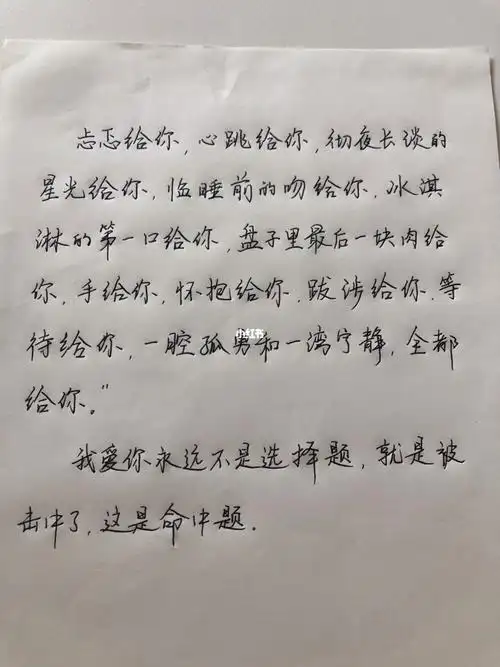 忐忑给你，心跳给你，彻夜长谈的
星光给你，临睡前的吻给你，冰淇
淋的第一口给你，盘子里最后一块肉给
你，手给你，怀抱给你，跋涉给你，等
待给你，一腔孤勇和一湾宁静，全都
给你。”
我爱你永远不是选择题，就是被
击中了，这是命中题。
小红书